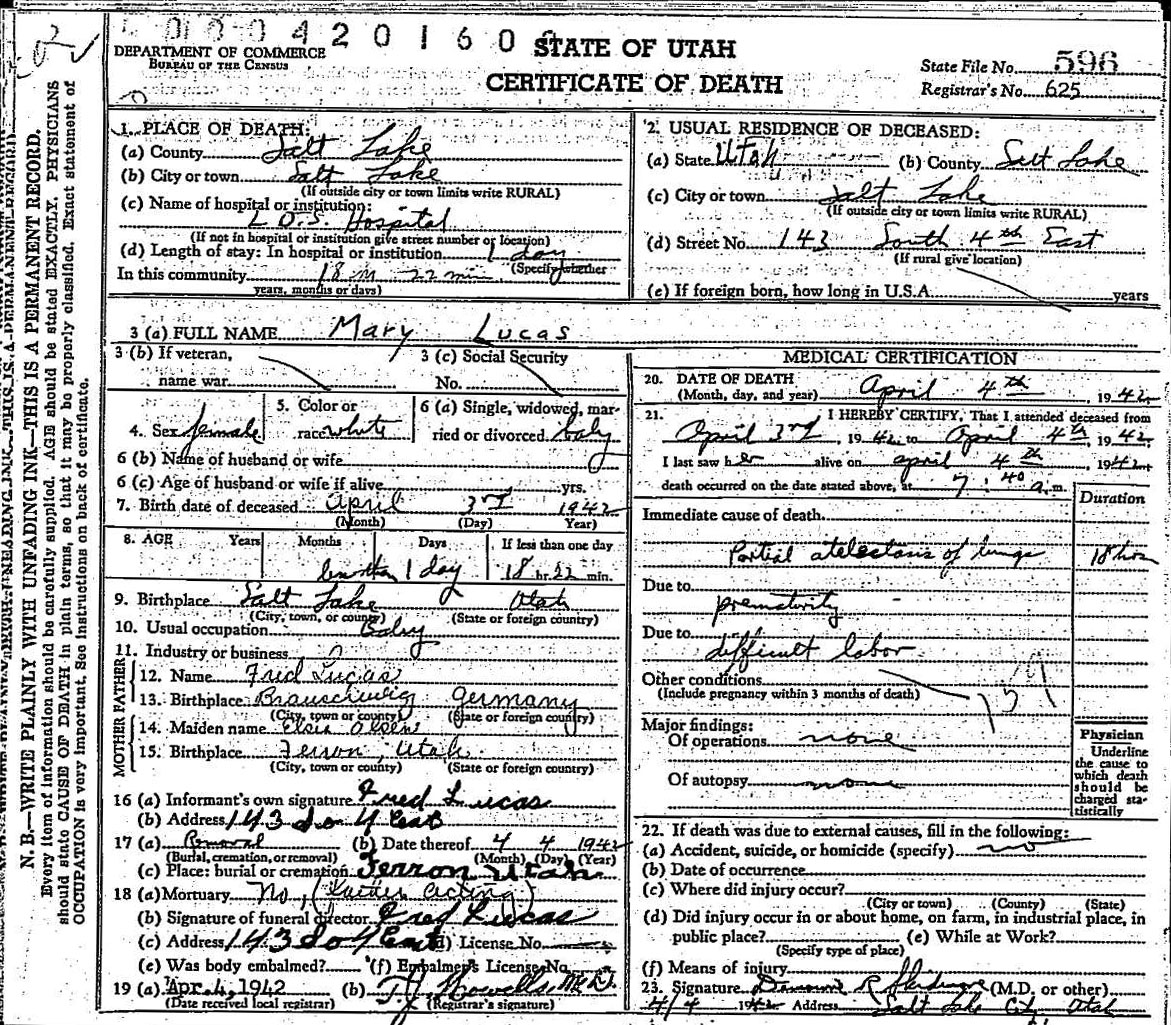 420160
DEPARTMENT OF COMMERCE
BUREAU OF THE CENSUS
STATE OF UTAH
CERTIFICATE OF DEATH
State File No. 596
Registrar's No. 625
N. B.—WRITE PLAINLY WITH UNFADING INK—THIS IS A PERMANENT RECORD.
Every item of information should be carefully supplied. AGE should be stated EXACTLY. PHYSICIANS
should state CAUSE OF DEATH in plain terms, so that it may be properly classified. Exact statement of
OCCUPATION is very important. See instructions on back of certificate.
1. PLACE OF DEATH:
(a) County Salt Lake
(b) City or town Salt Lake
(If outside city or town limits write RURAL)
(c) Name of hospital or institution:
L.D.S. Hospital
(If not in hospital or institution give street number or location)
(d) Length of stay: In hospital or institution 1 day
(Specify whether
In this community 18 22 min
years, months or days)
2. USUAL RESIDENCE OF DECEASED:
(a) State Utah (b) County Salt Lake
(c) City or town Salt Lake
(If outside city or town limits write RURAL)
(d) Street No. 143 South 4th East
(If rural give location)
(e) If foreign born, how long in U.S.A. years
3 (a) FULL NAME Mary Lucas
3 (b) If veteran,
name war
3 (c) Social Security
No.
4. Sex female
5. Color or
race white
6 (a) Single, widowed, mar-
ried or divorced baby
6 (b) Name of husband or wife
6 (c) Age of husband or wife if alive yrs.
7. Birth date of deceased April 3rd 1942
(Month) (Day) Year)
8. AGE Years Months Days If less than one day
less than 1 day 18 hr. 22 min.
9. Birthplace Salt Lake Utah
(City, town, or county) (State or foreign country)
10. Usual occupation Baby
11. Industry or business
FATHER
12. Name Fred Lucas
13. Birthplace Braunschweig Germany
(City, town or county) (State or foreign country)
MOTHER
14. Maiden name Elsie Olsen
15. Birthplace Ferron, Utah
(City, town or county) (State or foreign country)
16 (a) Informant's own signature Fred Lucas
(b) Address 143 So 4 East
17 (a) Removal (b) Date thereof 4 4 1942
(Burial, cremation, or removal) (Month) (Day) (Year)
(c) Place: burial or cremation Ferron Utah
18 (a) Mortuary No, (Father acting)
(b) Signature of funeral director Fred Lucas
(c) Address 143 So 4 East (d) License No.
(e) Was body embalmed? (f) Embalmer's License No.
19 (a) Apr. 4, 1942 (b) T.J. Howells, M.D.
(Date received local registrar) (Registrar's signature)
MEDICAL CERTIFICATION
20. DATE OF DEATH
(Month, day, and year) April 4th, 1942
21. I HEREBY CERTIFY, That I attended deceased from
April 3rd, 1942 to April 4th, 1942
I last saw her alive on april 4th, 1942.
death occurred on the date stated above, at 7:40 a.m.
Duration
Immediate cause of death
Partial atelectasis of lungs 18 hrs
Due to
prematurity
Due to
difficult labor
Other conditions
(Include pregnancy within 3 months of death)
159
Major findings:
Of operations none
Of autopsy none
Physician
Underline
the cause to
which death
should be
charged sta-
tistically
22. If death was due to external causes, fill in the following:
(a) Accident, suicide, or homicide (specify) no
(b) Date of occurrence
(c) Where did injury occur?
(City or town) (County) (State)
(d) Did injury occur in or about home, on farm, in industrial place, in
public place? (e) While at Work?
(Specify type of place)
(f) Means of injury
23. Signature R (M.D. or other)
4/4 1942 Address Salt Lake City Utah